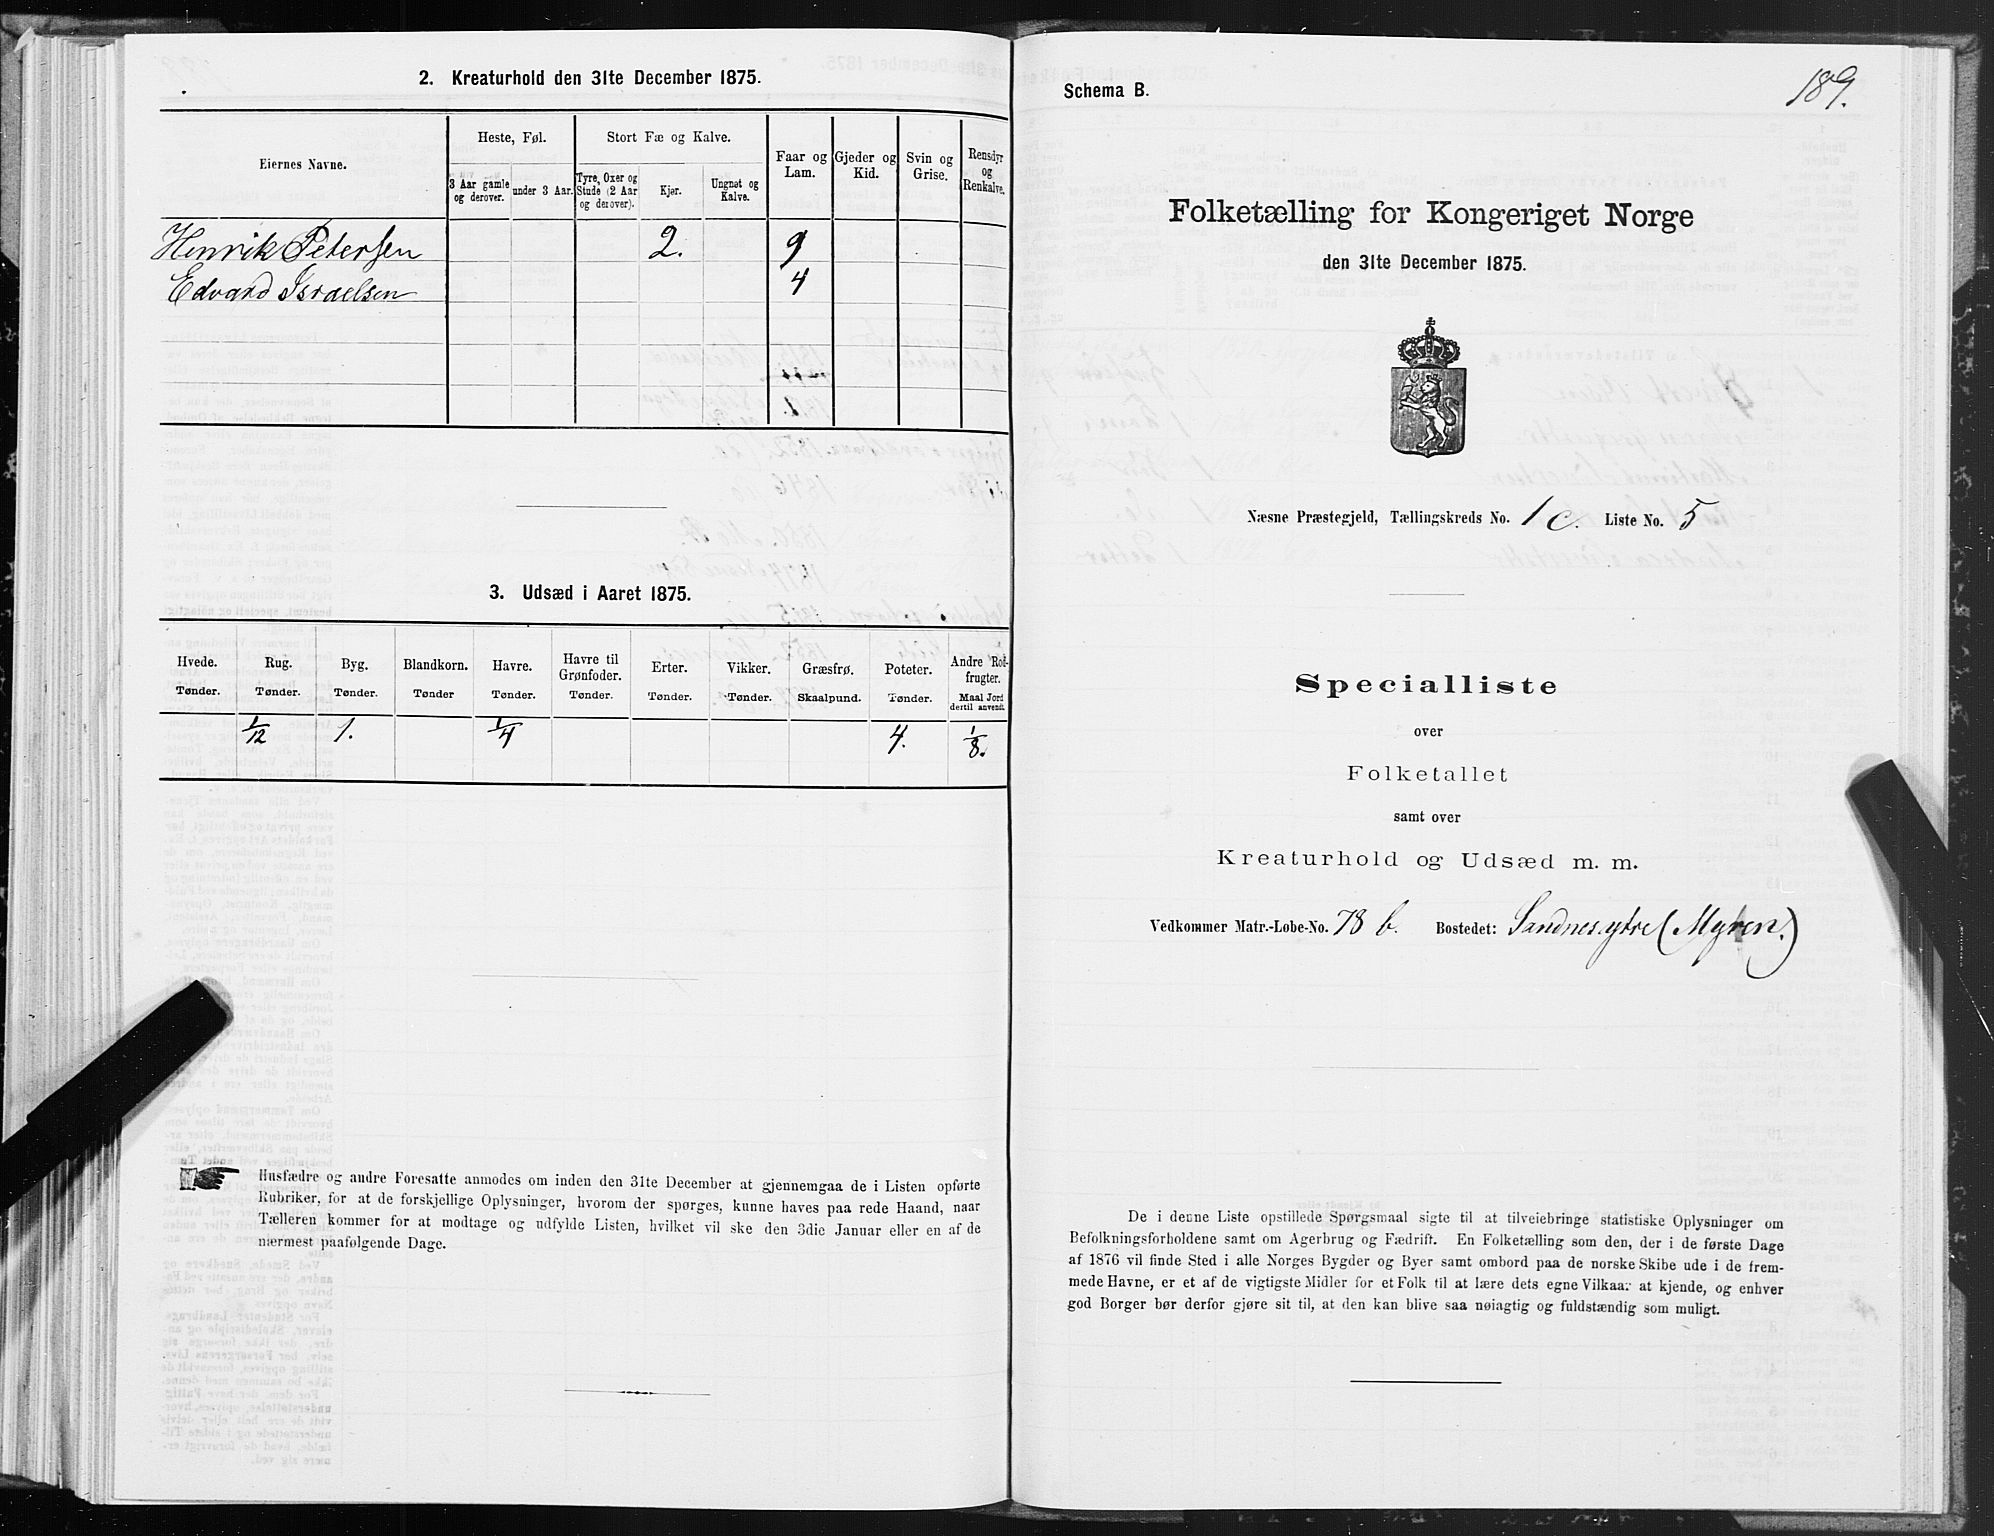 2. Kreaturhold den 31te December 1875.
Eiernes Navne.
Heste, Føl.
Stort Fæ og Kalve.
Faar og Lam.
Gjeder og Kid.
Svin og Grise.
Rensdyr og Renkalve.
3 Aar gamle og derover.
under 3 Aar.
Tyre, Oxer og Stude (2 Aar og derover).
Kjør.
Ungnøt og Kalve.
Henrik Petersen 2. 9
Edvard Israelsen 4
3. Udsæd i Aaret 1875.
Hvede. Rug. Byg. Blandkorn. Havre. Havre til Grønfoder. Erter. Vikker. Græsfrø. Poteter. Andre Rodfrugter.
Tønder. Tønder. Tønder. Tønder Tønder. Tønder. Tønder. Tønder. Skaalpund. Tønder. Maal Jord dertil anvendt.
1/12 1. 1/4 4. 1/8.
Husfædre og andre Foresatte anmodes om inden den 31te December at gjennemgaa de i Listen opførte
Rubriker, for at de forskjellige Oplysninger, hvorom der spørges, kunne haves paa rede Haand, naar
Tælleren kommer for at modtage og udfylde Listen, hvilket vil ske den 3die Januar eller en af de
nærmest paafølgende Dage.
Schema B.
189.
Folketælling for Kongeriget Norge
den 31te December 1875.
Næsne Præstegjeld, Tællingskreds No. 1 c. Liste No. 5
Specialliste
over
Folketallet
samt over
Kreaturhold og Udsæd m. m.
Vedkommer Matr.-Løbe-No. 78 b. Bostedet: Sandnes ytre (Myren.)
De i denne Liste opstillede Spørgsmaal sigte til at tilveiebringe statistiske Oplysninger om
Befolkningsforholdene samt om Agerbrug og Fædrift. En Folketælling som den, der i de første Dage
af 1876 vil finde Sted i alle Norges Bygder og Byer samt ombord paa de norske Skibe ude i de frem-
mede Havne, er et af de vigtigste Midler for et Folk til at lære dets egne Vilkaar at kjende, og enhver
god Borger bør derfor gjøre sit til, at den kan blive saa nøiagtig og fuldstændig som muligt.